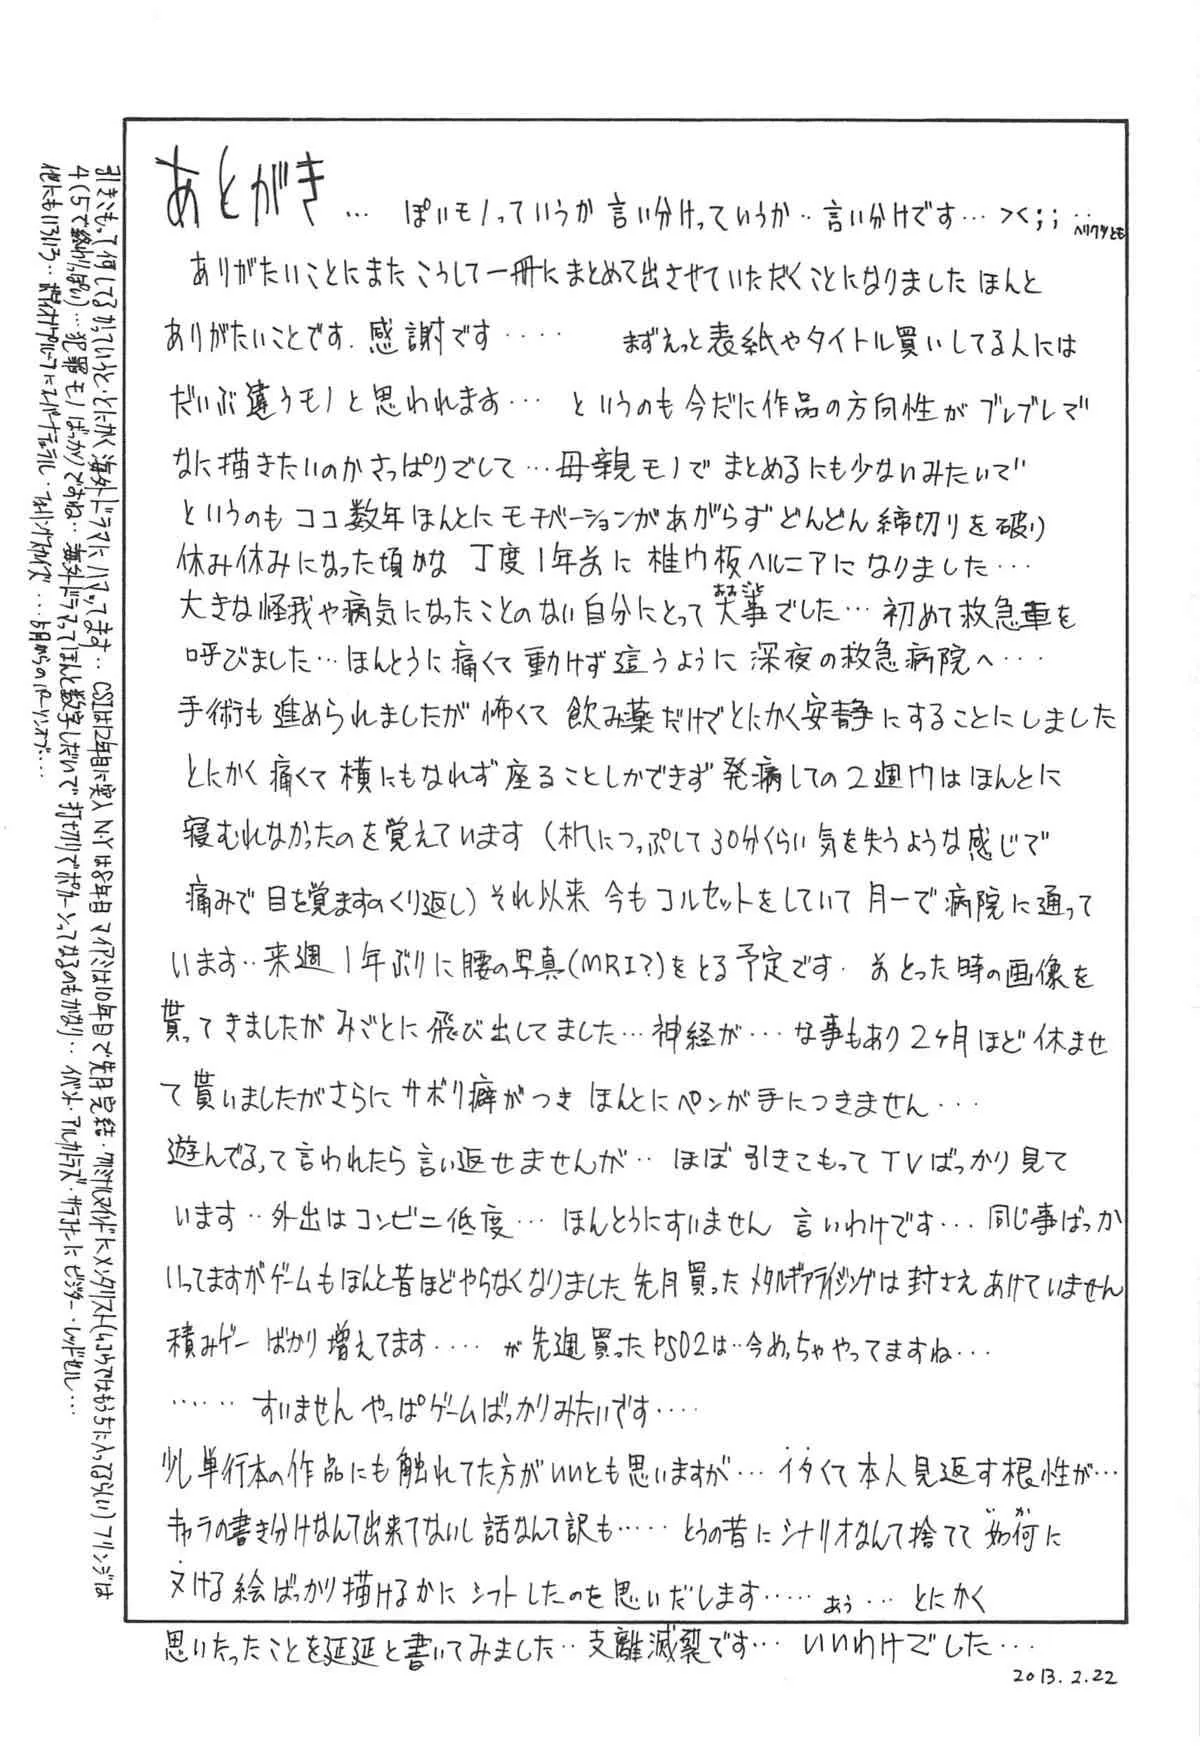 あとがき… ぽいモノっていうか言い分けっていうか‥言い分けです…><;;‥ヘリクツとも
ありがたいことにまたこうして一冊にまとめて出させていただくことになりましたほんと
ありがたいことです.感謝です‥‥ まずえっと表紙やタイトル買いしてる人には
だいぶ違うモノと思われます… というのも今だに作品の方向性がブレブレで
なに描きたいのかさっぱりでして…母親モノでまとめるにも少ないみたいで
というのもココ数年ほんとにモチベーションがあがらずどんどん締切りを破り
休み休みになった頃かな 丁度1年前に椎間板ヘルニアになりました…
大きな怪我や病気になったことのない自分にとって大事でした…初めて救急車を
おおごと
呼びました…ほんとうに痛くて動けず這うように深夜の救急病院へ…
手術も進められましたが怖くて飲み薬だけでとにかく安静にすることにしました
とにかく痛くて横にもなれず座ることしかできず発病しての2週間はほんとに
寝むれなかったのを覚えています(机につっぷして30分くらい気を失うような感じで
痛みで目を覚ますのくり返し)それ以来今もコルセットをしていて月一で病院に通って
います‥来週1年ぶりに腰の写真(MRI?)をとる予定です. あとった時の画像を
貰ってきましたがみごとに飛び出してました…神経が…な事もあり2ヶ月ほど休ませ
て貰いましたがさらにサボリ癖がつきほんとにペンが手につきません…
遊んでるって言われたら言い返せませんが‥ほぼ引きこもってTVばっかり見て
います‥外出はコンビニ低度…ほんとうにすいません 言いわけです…同じ事ばっか
いってますがゲームもほんと昔ほどやらなくなりました先月買ったメタルギアライジングは封さえあけていません
積みゲーばかり増えてます‥‥が先週買ったPSO2は‥今めっちゃやってますね…
‥‥‥すいませんやっぱゲームばっかりみたいです‥‥
少し単行本の作品にも触れてた方がいいとも思いますが…イタくて本人見返す根性が…
キャラの書き分けなんて出来てないし話なんて訳も‥‥‥とうの昔にシナリオなんて捨てて如何に
いか
ヌける絵ばっかり描けるかにシフトしたのを思いだします‥‥‥あぅ…とにかく
思いたったことを延延と書いてみました‥支離滅裂です… いいわけでした…
2013.2.22
引きこもって何してるかっていうと・とにかく海外ドラマにハマってます‥CSIは12年目に突入NYは8年目マイアミは10年目で先月完結・クリミナルマインドにメンタリスト(ムコウではもう5に入ってるらしい)フリンジは
4(5で終わりっぽい)…犯罪モノばっかりですね‥海外ドラマってほんと数字しだいで打ち切りでポカーンってなるのもかなり‥イベント・アルカトラズ・サラコナーにビジター・レッドセル…
他にもいろいろ‥ボイボグルーブにスーパーナチュラル・フォーリングスカイズ…5月からのパーソンオブ…